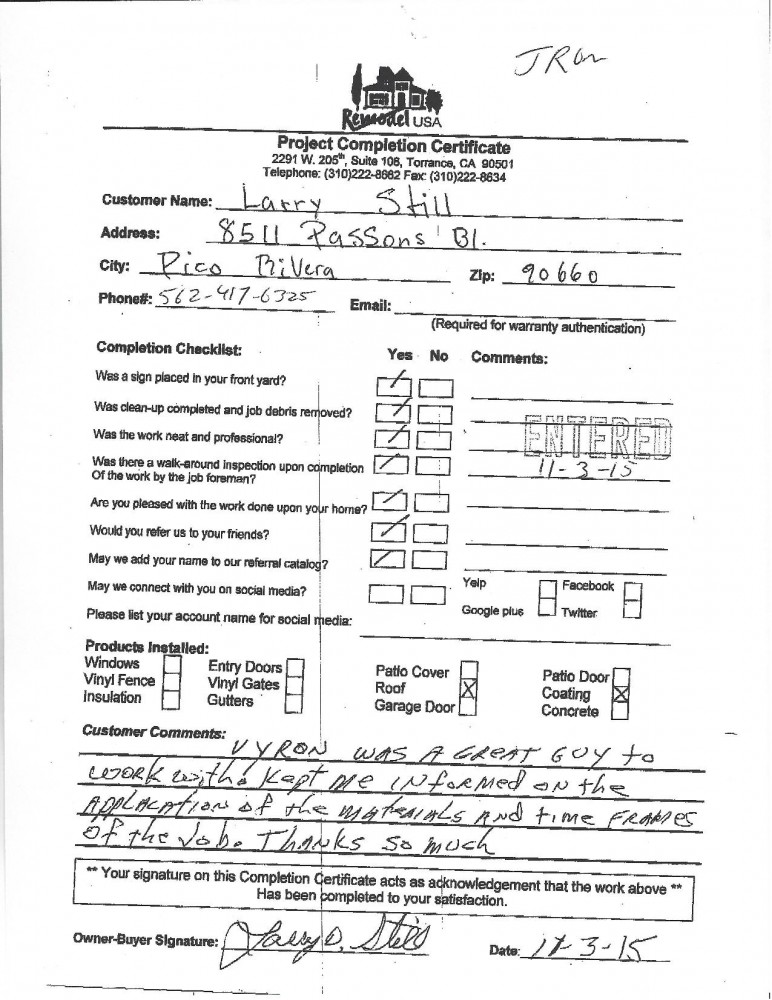 Remodel USA
Project Completion Certificate
2291 W. 205th, Suite 106, Torrance, CA 90501
Telephone: (310)222-8662 Fax: (310)222-8634
Customer Name: Larry Still
Address: 8511 Passons Bl.
City: Pico RiVera Zip: 90660
Phone#: 562-417-6325 Email:
(Required for warranty authentication)
Completion Checklist: Yes No Comments:
Was a sign placed in your front yard?
Was clean-up completed and job debris removed?
Was the work neat and professional?
ENTERED
Was there a walk-around inspection upon completion
11-3-15
Of the work by the job foreman?
Are you pleased with the work done upon your home?
Would you refer us to your friends?
May we add your name to our referral catalog?
May we connect with you on social media? Yelp Facebook
Google plus Twitter
Please list your account name for social media:
Products Installed:
Windows Entry Doors Patio Cover Patio Door
Vinyl Fence Vinyl Gates Roof X Coating X
Insulation Gutters Garage Door Concrete
Customer Comments:
VYRON WAS A GREAT GUY to
WORK with. Kept me INformed oN the
APPLACAtioN of the MAteRiALS AND time FRAMES
of the Job. THANKS So much
** Your signature on this Completion Certificate acts as acknowledgement that the work above **
Has been completed to your satisfaction.
Owner-Buyer Signature: Larry D. Still Date: 11-3-15